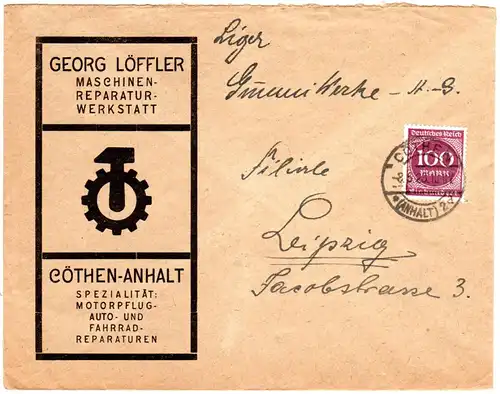 GEORG LÖFFLER
MASCHINEN-
REPARATUR-
WERKSTATT
CÖTHEN-ANHALT
SPEZIALITÄT:
MOTORPFLUG-
AUTO- UND
FAHRRAD-
REPARATUREN
Liger
Gummi Werke - A.-G.
Filiale
Leipzig
Jacobstrasse 3.
Deutsches Reich
100
MARK
(ANHALT)